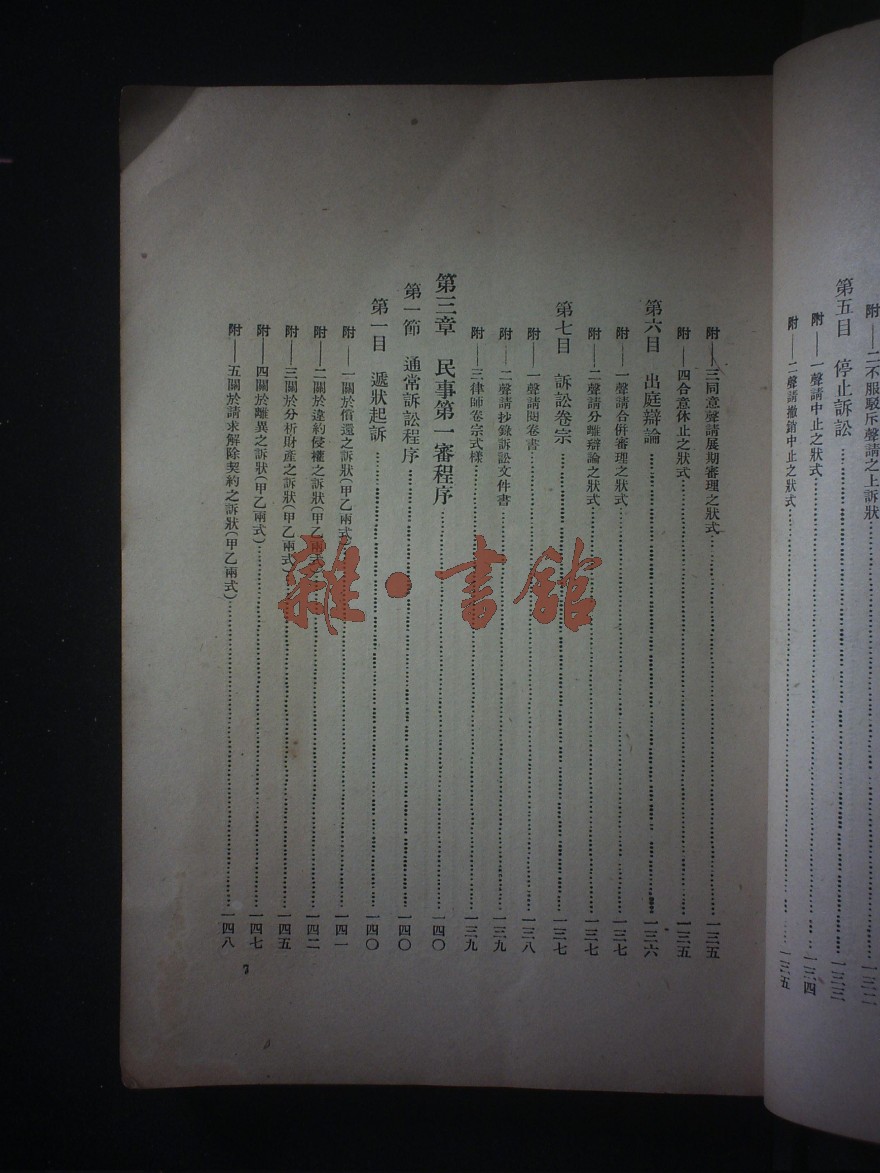 附——二不服駁斥聲請之上訴狀……一三二
第五目　停止訴訟……一三三
附——一聲請中止之狀式……一三四
附——二聲請撤銷中止之狀式……一三五
附——三同意聲請展期審理之狀式……一三五
附——四合意休止之狀式……一三五
第六目　出庭辯論……一三六
附——一聲請合併審理之狀式……一三七
附——二聲請分離辯論之狀式……一三七
第七目　訴訟卷宗……一三七
附——一聲請閱卷書……一三八
附——二聲請抄錄訴訟文件書……一三九
附——三律師卷宗式樣……一三九
第三章　民事第一審程序……一四〇
第一節　通常訴訟程序……一四〇
第一目　遞狀起訴……一四〇
附——一關於償還之訴狀(甲乙兩式)……一四一
附——二關於違約侵權之訴狀(甲乙兩式)……一四二
附——三關於分析財產之訴狀(甲乙兩式)……一四五
附——四關於離異之訴狀(甲乙兩式)……一四七
附——五關於請求解除契約之訴狀(甲乙兩式)……一四八
7
雜·書館